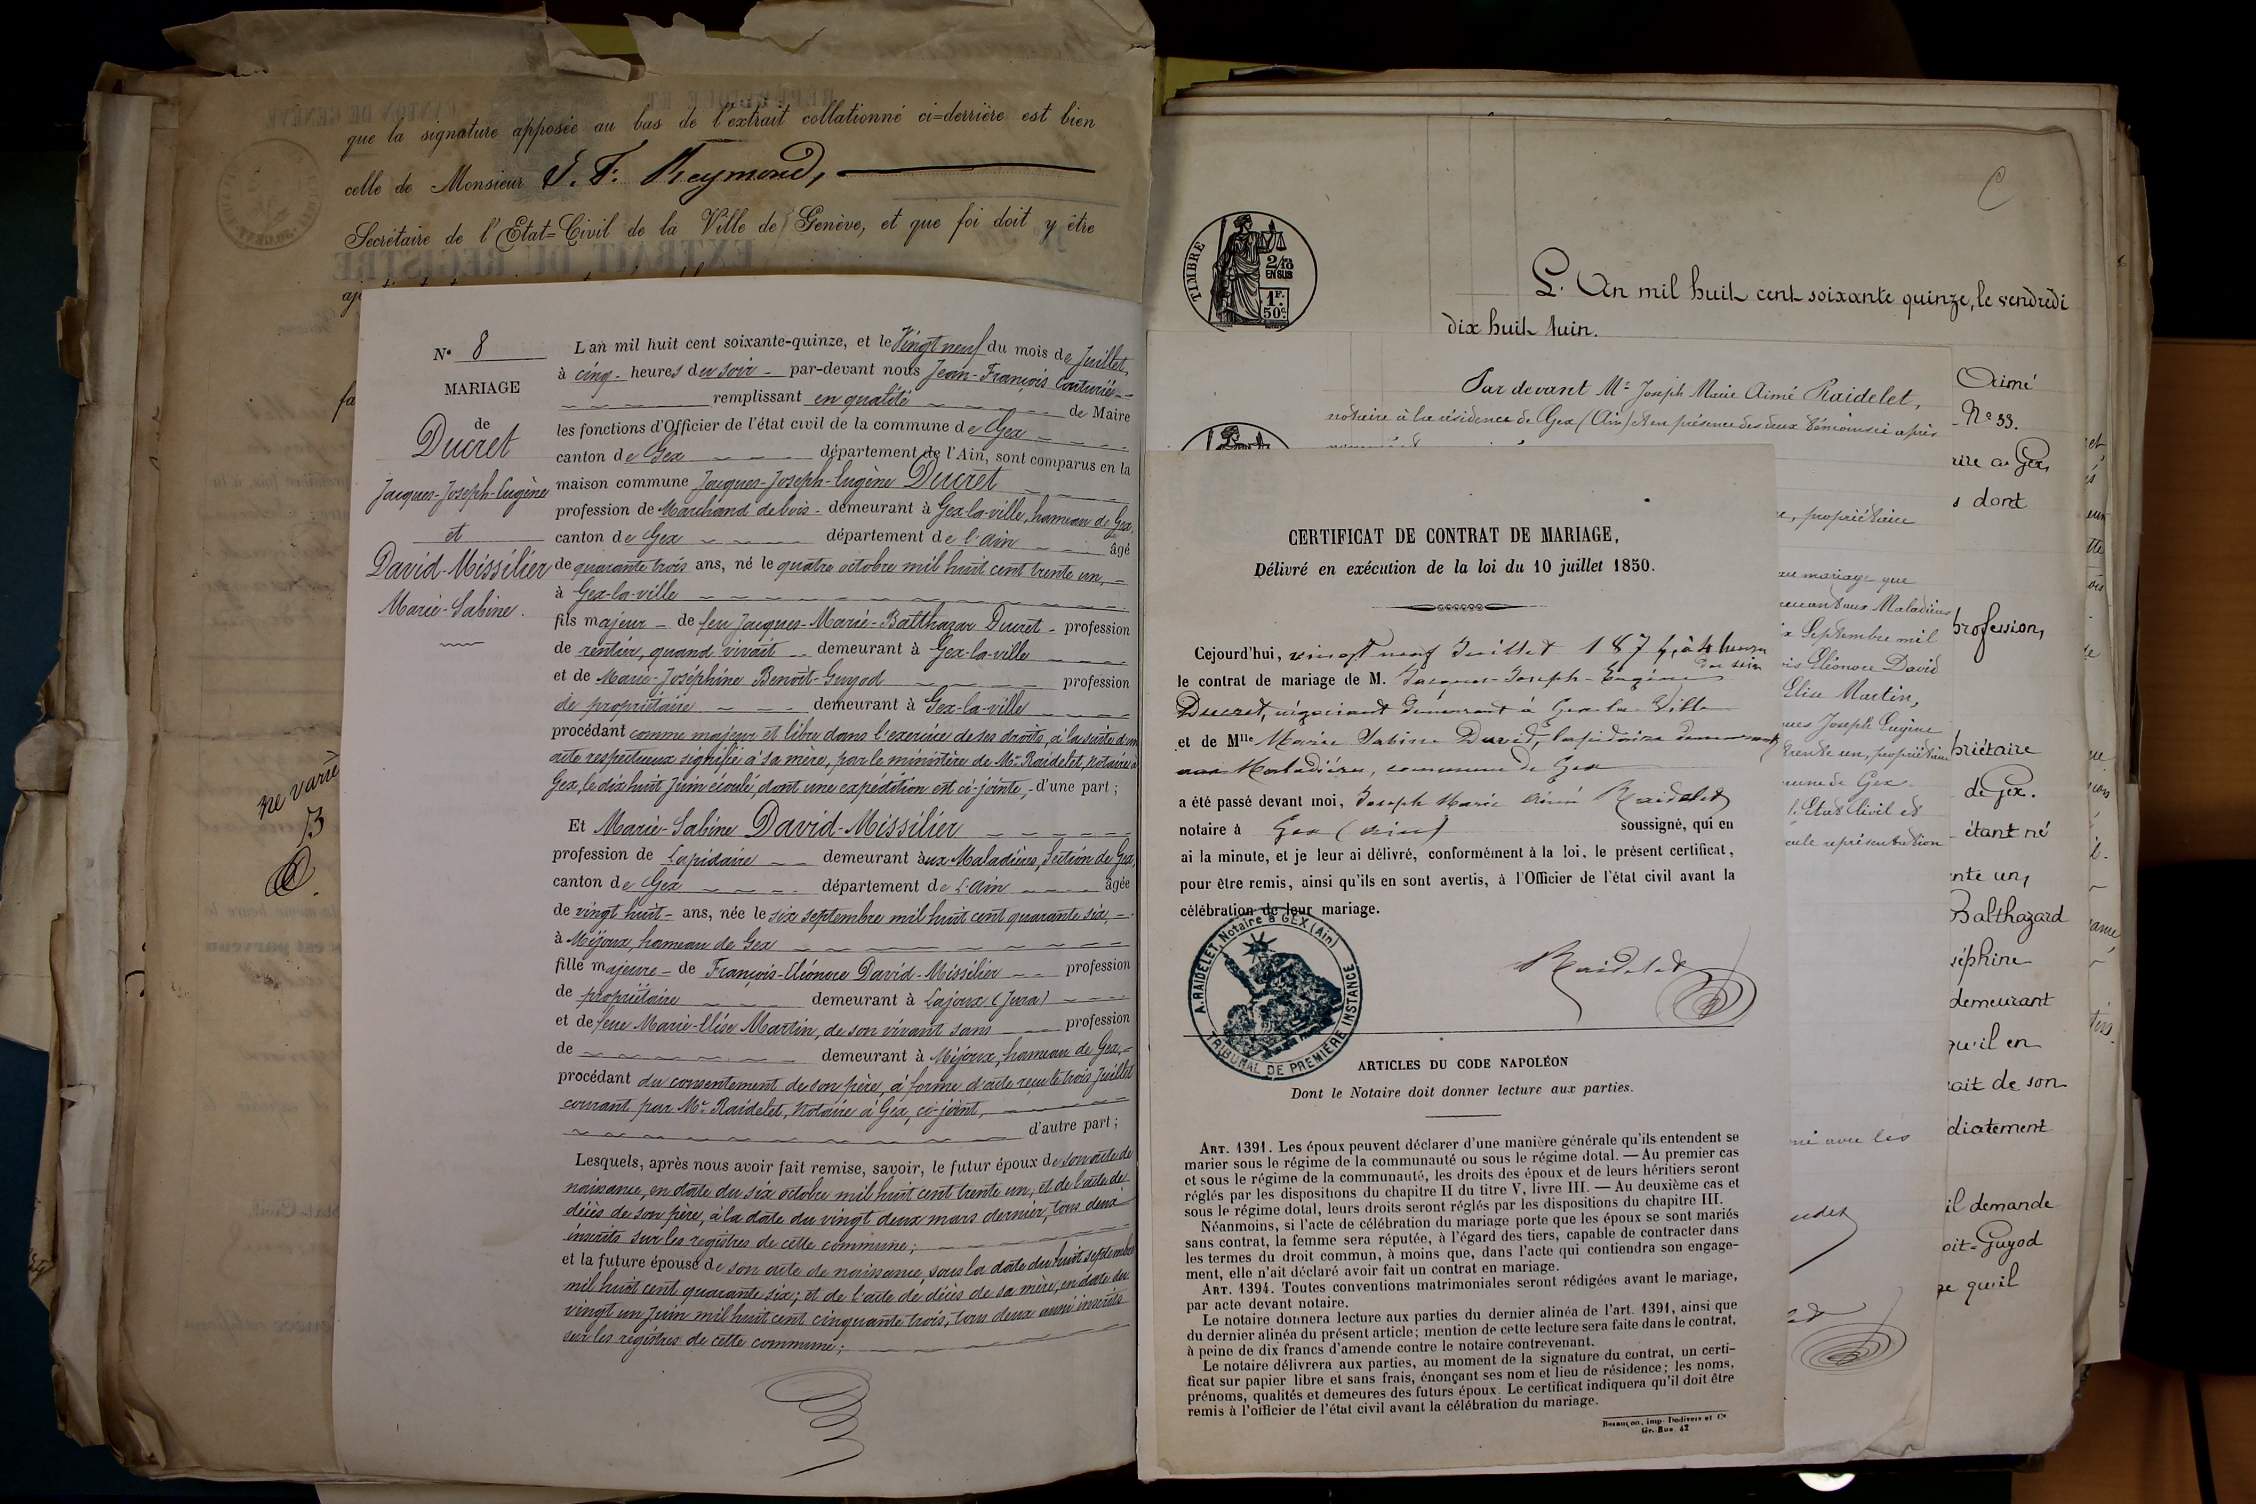 que la signature apposée au bas de l'extrait collationné ci=derrière est bien
celle de Monsieur J. F. Reymond,
Secrétaire de l'Etat=Civil de la Ville de Genève, et que foi doit y être
ne varie
N° 8
MARIAGE
de
Ducret
Jacques-Joseph-Eugène
et
David-Missilier
Marie-Sabine.
L'an mil huit cent soixante-quinze, et le Vingt neuf du mois de Juillet,
à cinq heures du soir par-devant nous Jean-François Couturié
remplissant en qualité de Maire
les fonctions d'Officier de l'état civil de la commune de Gex
canton de Gex département de l'Ain, sont comparus en la
maison commune Jacques-Joseph-Eugène Ducret
profession de Marchand de bois demeurant à Gex-la-ville, hameau de Gex,
canton de Gex département de l'Ain âgé
de quarante trois ans, né le quatre octobre mil huit cent trente un,
à Gex-la-ville
fils majeur de feu Jacques-Marie-Balthazar Ducret profession
de rentier, quand vivait demeurant à Gex-la-ville
et de Marie-Joséphine Benoît-Guyod profession
de propriétaire demeurant à Gex-la-ville
procédant comme majeur et libre dans l'exercice de ses droits, à la suite d'un
acte respectueux signifié à sa mère, par le ministère de Me Raidelet, Notaire à
Gex, le dix huit Juin écoulé, dont une expédition est ci-jointe, d'une part ;
Et Marie-Sabine David-Missilier
profession de Lapidaire demeurant aux Maladière, Section de Gex,
canton de Gex département de l'Ain âgée
de vingt huit ans, née le six septembre mil huit cent quarante six,
à Mijoux, hameau de Gex
fille majeure de François-Eléonore David-Missilier profession
de propriétaire demeurant à Lajoux (Jura)
et de feue Marie-Elise Martin, de son vivant sans profession
de demeurant à Mijoux, hameau de Gex,
procédant du consentement de son père, à forme d'acte reçu le trois Juillet
courant par Me Raidelet, Notaire à Gex, ci-joint,
d'autre part ;
Lesquels, après nous avoir fait remise, savoir, le futur époux de son acte de
naissance, en date du six octobre mil huit cent trente un, et de l'acte de
décès de son père, à la date du vingt deux mars dernier, tous deux
inscrits sur les registres de cette commune;
et la future épouse de son acte de naissance, sous la date du huit septembre
mil huit cent quarante six; et de l'acte de décès de sa mère, en date du
vingt un Juin mil huit cent cinquante trois, tous deux aussi inscrits
sur les registres de cette commune;
TIMBRE
2/10
EN SUS
1F.
50c
L'An mil huit cent soixante quinze, le vendredi
dix huit Juin.
Par devant Me Joseph Marie Aimé Raidelet,
notaire à la résidence de Gex (Ain) et en présence des deux témoins ci après
CERTIFICAT DE CONTRAT DE MARIAGE,
Délivré en exécution de la loi du 10 juillet 1850.
Cejourd'hui, vingt neuf Juillet 1875, à 4 heures
du soir
le contrat de mariage de M. Jacques-Joseph-Eugène
Ducret, négociant demeurant à Gex-la-Ville
et de Mlle Marie Sabine David, lapidaire demeurant
aux Maladières, commune de Gex
a été passé devant moi, Joseph Marie Aimé Raidelet
notaire à Gex (Ain) soussigné, qui en
ai la minute, et je leur ai délivré, conformément à la loi, le présent certificat,
pour être remis, ainsi qu'ils en sont avertis, à l'Officier de l'état civil avant la
célébration de leur mariage.
A. RAIDELET, Notaire à GEX (Ain)
TRIBUNAL DE PREMIÈRE INSTANCE
Raidelet
ARTICLES DU CODE NAPOLÉON
Dont le Notaire doit donner lecture aux parties.
ART. 1391. Les époux peuvent déclarer d'une manière générale qu'ils entendent se
marier sous le régime de la communauté ou sous le régime dotal. — Au premier cas
et sous le régime de la communauté, les droits des époux et de leurs héritiers seront
réglés par les dispositions du chapitre II du titre V, livre III. — Au deuxième cas et
sous le régime dotal, leurs droits seront réglés par les dispositions du chapitre III.
Néanmoins, si l'acte de célébration du mariage porte que les époux se sont mariés
sans contrat, la femme sera réputée, à l'égard des tiers, capable de contracter dans
les termes du droit commun, à moins que, dans l'acte qui contiendra son engage-
ment, elle n'ait déclaré avoir fait un contrat en mariage.
ART. 1394. Toutes conventions matrimoniales seront rédigées avant le mariage,
par acte devant notaire.
Le notaire donnera lecture aux parties du dernier alinéa de l'art. 1391, ainsi que
du dernier alinéa du présent article; mention de cette lecture sera faite dans le contrat,
à peine de dix francs d'amende contre le notaire contrevenant.
Le notaire délivrera aux parties, au moment de la signature du contrat, un certi-
ficat sur papier libre et sans frais, énonçant ses nom et lieu de résidence; les noms,
prénoms, qualités et demeures des futurs époux. Le certificat indiquera qu'il doit être
remis à l'officier de l'état civil avant la célébration du mariage.
Besançon, imp. Dodivers et Cie
Gr.-Rue, 42
, propriétaire
au mariage que
aux Maladières
Septembre mil
Eléonore David
Elise Martin,
Joseph Eugène
trente un, propriétaire
commune de Gex
l'Etat Civil et
représentation
avec les
Aimé
N° 33.
à Gex
dont
profession,
priétaire
de Gex.
étant né
nte un,
Balthazard
séphine
demeurant
qu'il en
ait de son
diatement
il demande
oit=Guyod
qu'il